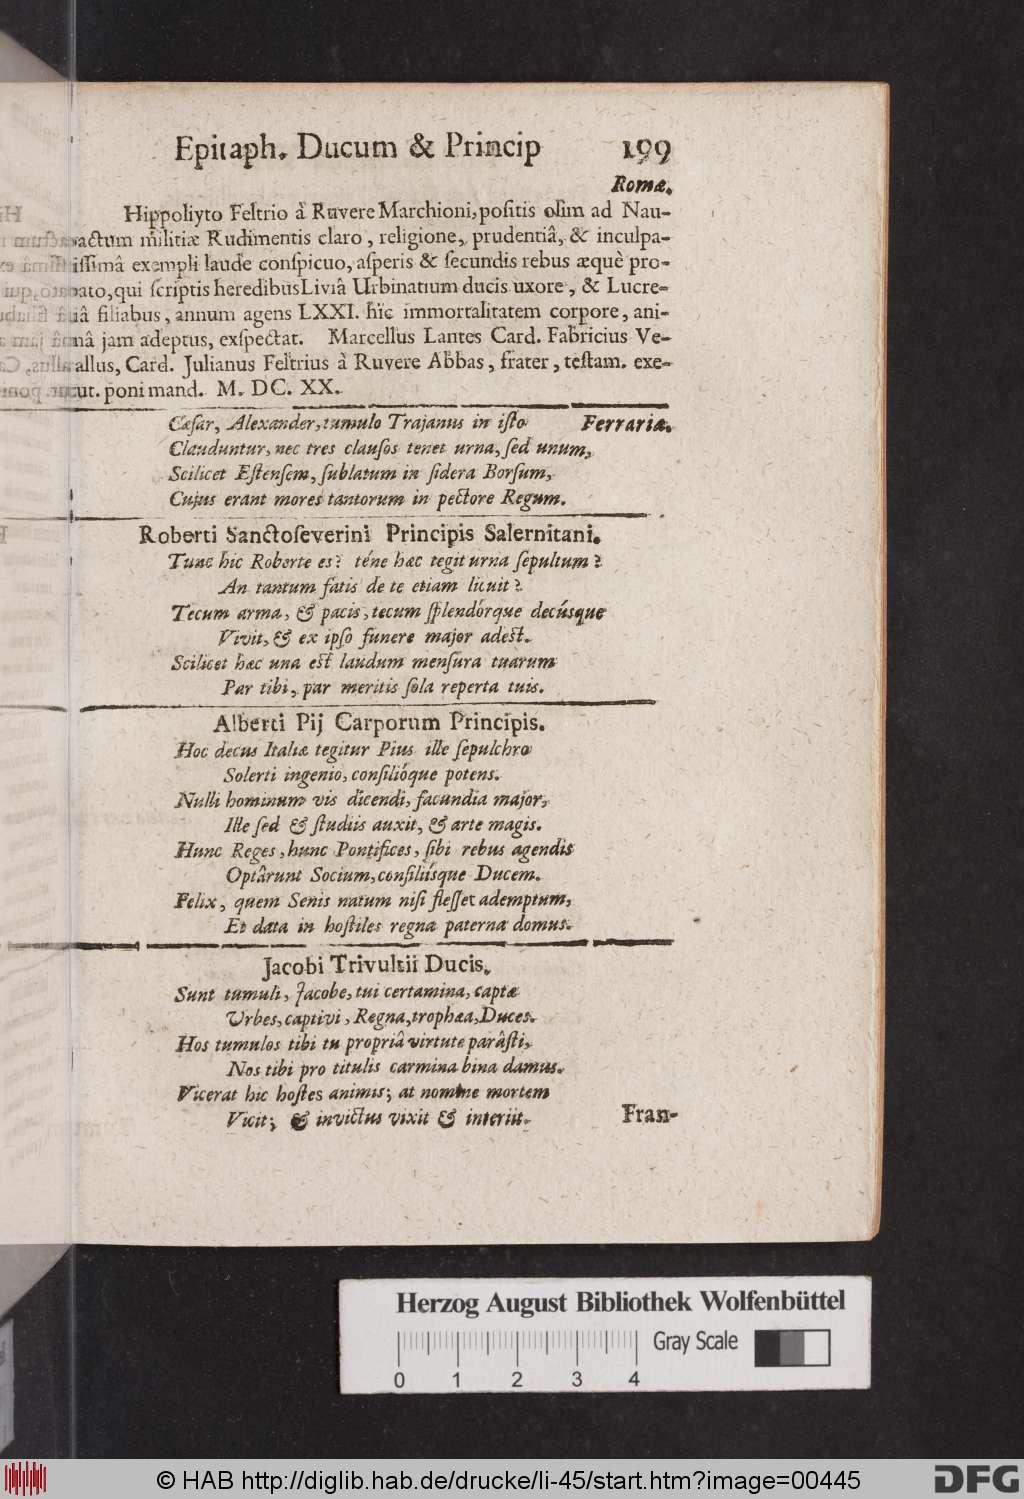 Epitaph. Ducum & Princip 199
Romæ.
Hippoliyto Feltrio à Ruvere Marchioni, positis olim ad Nau-
actum militiæ Rudimentis claro, religione, prudentiâ, & inculpa-
tissimâ exempli laude conspicuo, asperis & secundis rebus æquè pro-
bato, qui scriptis heredibus Liviâ Urbinatium ducis uxore, & Lucre-
tiâ filiabus, annum agens LXXI. hîc immortalitatem corpore, ani-
mâ jam adeptus, exspectat. Marcellus Lantes Card. Fabricius Ve-
rallus, Card. Julianus Feltrius à Ruvere Abbas, frater, testam. exe-
cut. poni mand. M. DC. XX.
Cæsar, Alexander, tumulo Trajanus in isto Ferrariæ.
Clauduntur, nec tres clausos tenet urna, sed unum,
Scilicet Estensem, sublatum in sidera Borsum,
Cujus erant mores tantorum in pectore Regum.
Roberti Sanctoseverini Principis Salernitani.
Tunc hic Roberte es? téne hæc tegit urna sepultum?
An tantum fatis de te etiam licuit?
Tecum arma, & pacis, tecum splendórque decúsque
Vivit, & ex ipso funere major adest.
Scilicet hæc una est laudum mensura tuarum
Par tibi, par meritis sola reperta tuis.
Alberti Pij Carporum Principis.
Hoc decus Italiæ tegitur Pius ille sepulchro
Solerti ingenio, consilióque potens.
Nulli hominum vis dicendi, facundia major,
Ille sed & studiis auxit, & arte magis.
Hunc Reges, hunc Pontifices, sibi rebus agendis
Optârunt Socium, consiliísque Ducem.
Felix, quem Senis natum nisi flesset ademptum,
Et data in hostiles regna paterna domus.
Jacobi Trivultii Ducis.
Sunt tumuli, Jacobe, tui certamina, captæ
Urbes, captivi, Regna, trophæa, Duces.
Hos tumulos tibi tu propriâ virtute parâsti,
Nos tibi pro titulis carmina bina damus.
Vicerat hic hostes animis; at nomine mortem
Vicit; & invictus vixit & interiit.
Fran-
Herzog August Bibliothek Wolfenbüttel
Gray Scale
0 1 2 3 4
© HAB http://diglib.hab.de/drucke/li-45/start.htm?image=00445
DFG